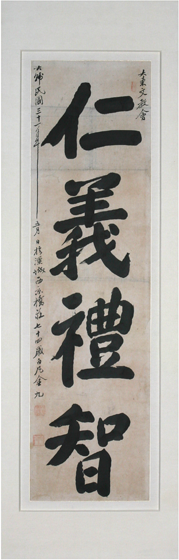 大東文教會
仁義禮智
大韓民國三十一年
五月 日於漢城西 橋莊七十四歲白凡金九